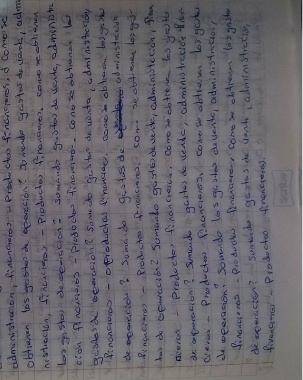 administración, financieros - Productos financieros. ¿Como se
obtienen los gastos de operación? Sumando gastos de venta, admi
nistración, financieros - Productos financieros. como se obtienen
los gastos de operación? Sumando gastos de venta, administra
ción financieros - Productos financieros. como se obtienen los
gastos de operación? Sumando gastos de venta, administración,
financieros - Productos financieros. como se obtienen los gastos
de operación? Sumando gastos de administración
financieros - Productos financieros. como se obtienen los gas
tos de operación? Sumando gastos de venta, administración, finan
cieros - Productos financieros. como se obtienen los gastos
de operación? Sumando gastos de venta, administración finan
cieros - Productos financieros, como se obtienen los gastos
de operación? Sumando los gastos de venta, administración,
financieros - Productos financieros, como se obtienen los gastos
de operación? Sumando gastos de venta, administración,
financieros - Productos financieros.